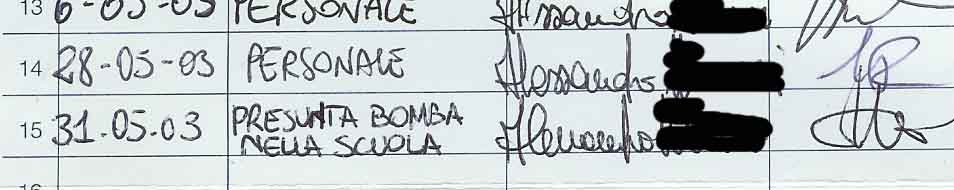 13 6-05-03 PERSONALE Alessandro
14 28-05-03 PERSONALE Alessandro
15 31.05.03 PRESUNTA BOMBA Alessandro
NELLA SCUOLA
16